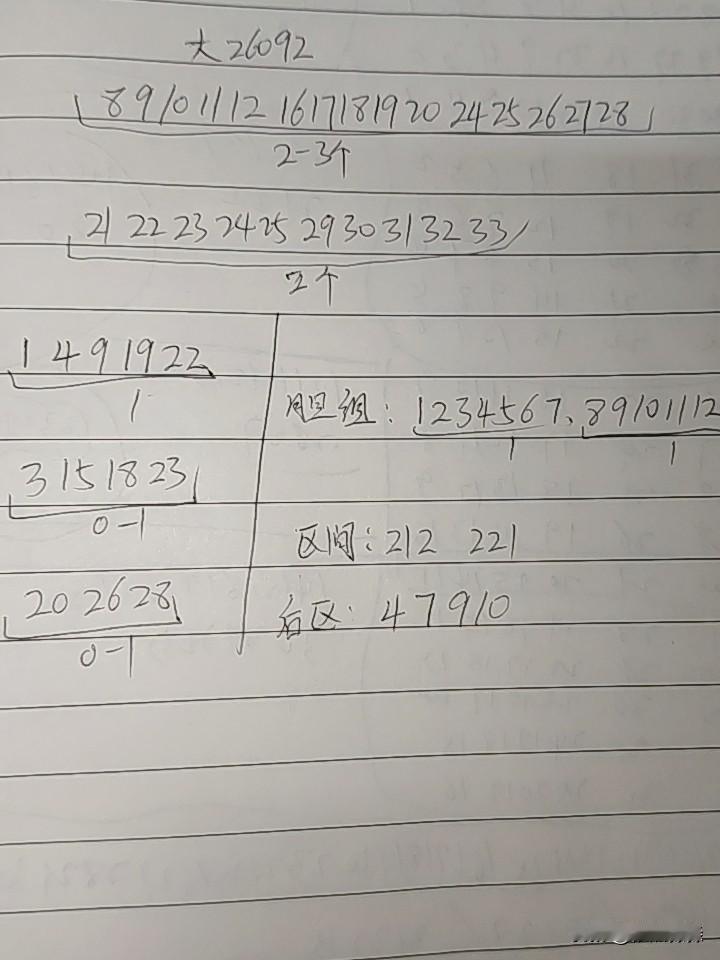 大26092
8 9 10 11 12 16 17 18 19 20 24 25 26 27 28
2-3个
21 22 23 24 25 29 30 31 32 33
2个
1 4 9 19 22
1
3 15 18 23
0-1
20 26 28
0-1
胆组:1 2 3 4 5 6 7、8 9 10 11 12
1 1
区间:212 221
后区:4 7 9 10